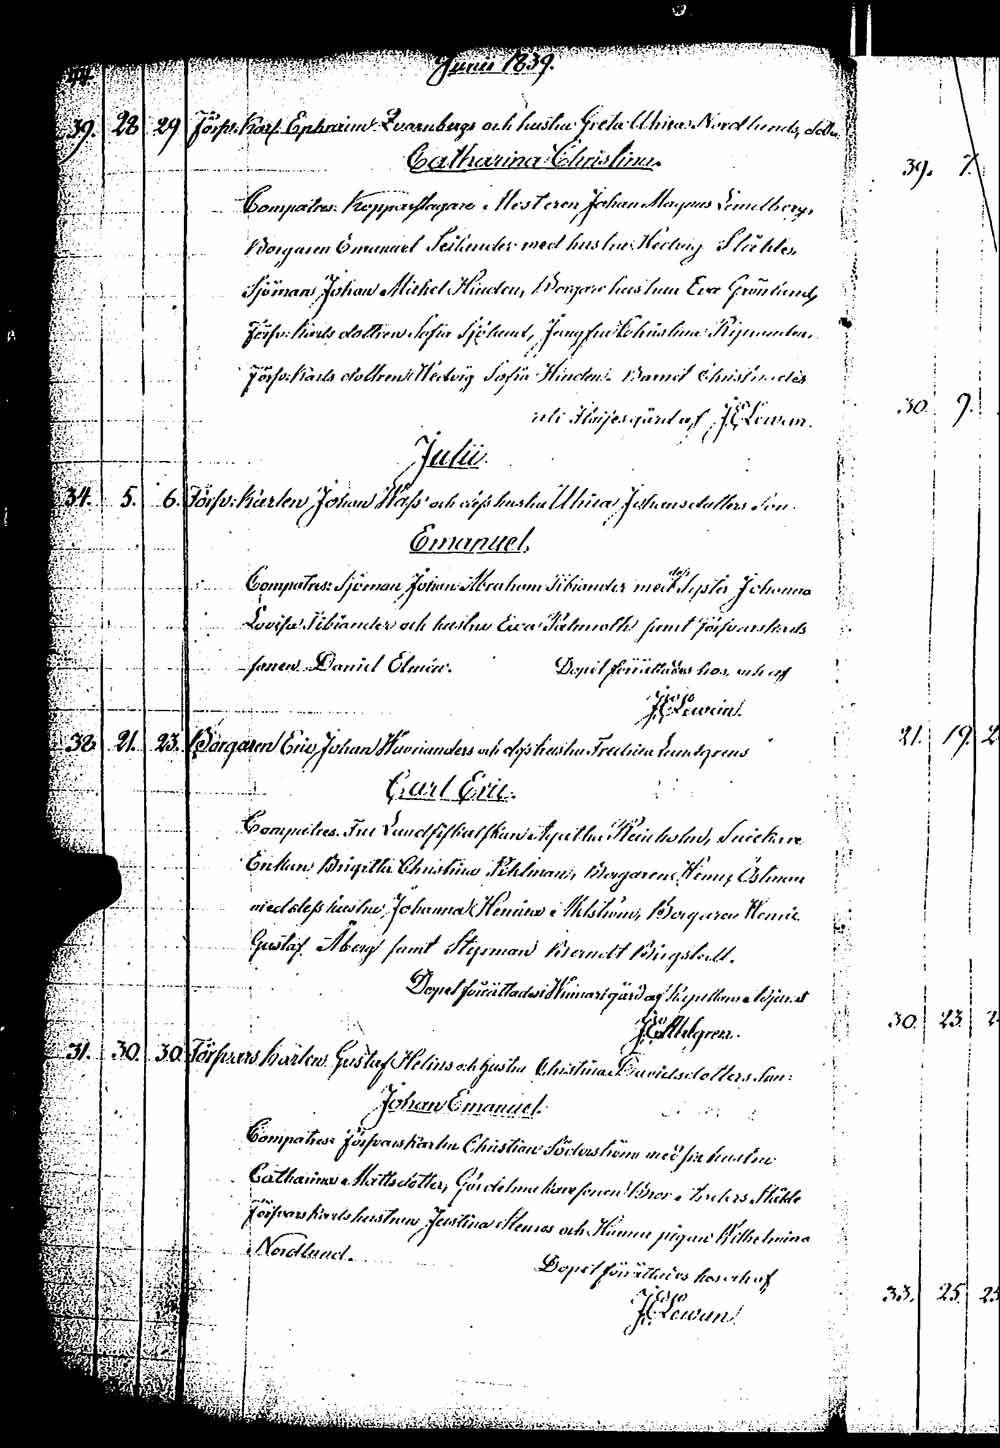 44.
Junii 1839.
39. 28 29 Förfs: Karl. Ephraim Zvarnbergs och hustru Greta Ulrica Nordlunds, dotter
Catharina Christina.
Compatres: Kopparslagare Mesteren Johan Magnus Lindberg,
Borgaren Emanuel Selinder med hustru Hedvig Ståhle,
Sjöman Johan Mickel Hinden, Borgare hustrun Eva Grönlund,
Förfs: Karls dottren Sofia Sjölund, Jungfru Christina
Förfs: Karls dottren Hedvig Sofia Hinden. Barnet Christnades
uti gård af J. C. Lewan.
Julii.
34. 5. 6. Förfs: Karlen Johan Wass och dess hustru Ulrica Johansdotters Son
Emanuel,
Compatres: Sjöman Johan Abraham Sibiander med dess Syster Johanna
Lovisa Sibiander och hustru Eva Palmroth samt Förfvarskarls
sonen Daniel Elmén. Dopet förrättades hos och af
J. C. Lewan.
38 21. 23. Borgaren Eric Johan och dess hustru Fredrica Lundgrens
Carl Eric.
Compatres. Fru Landsfiskalskan Agatha Reinholm, Snickare
Enkan Brigitta Christina Pihlman, Borgaren Henric Östman
med dess hustru Johanna Henrica Ahlström, Borgaren Henric
Gustaf Åberg samt Styrman Berndt
Dopet förrättades i gård af Kapellans Adjunct
J. C. Ahlgren.
31. 30. 30. Förfvars Karlen Gustaf Helins och hustru Christina Davidsdotters Son:
Johan Emanuel.
Compatres: Förfvarskarlen Christian Söderström med sin hustru
Catharina Mattsdotter, Gördelmakaresonen Anders Ståhle
Förfvarskarls hustrun Justina och pigan Wilhelmina
Nordlund. Dopet förrättades hos och af
J. C. Lewan.
39. 7.
30 9.
21. 19. 2
30. 23. 2
33. 25 25